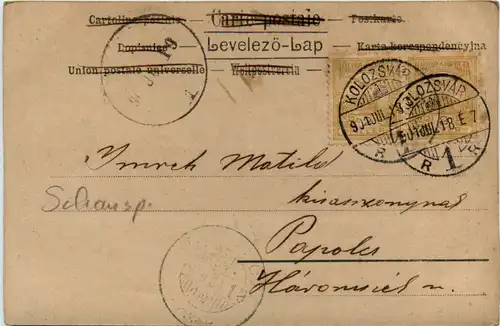 Cartolina postale — Carte postale — Postkarte
Dopisnice — Levelező-Lap — Karta korespondencyjna
Union postale universelle — Weltpostverein
KOLOZSVÁR
KOLOZSVÁR
R 1 R
Imreh Matild
kisasszonynak
Papolcz
Háromszék m.
Schausp.